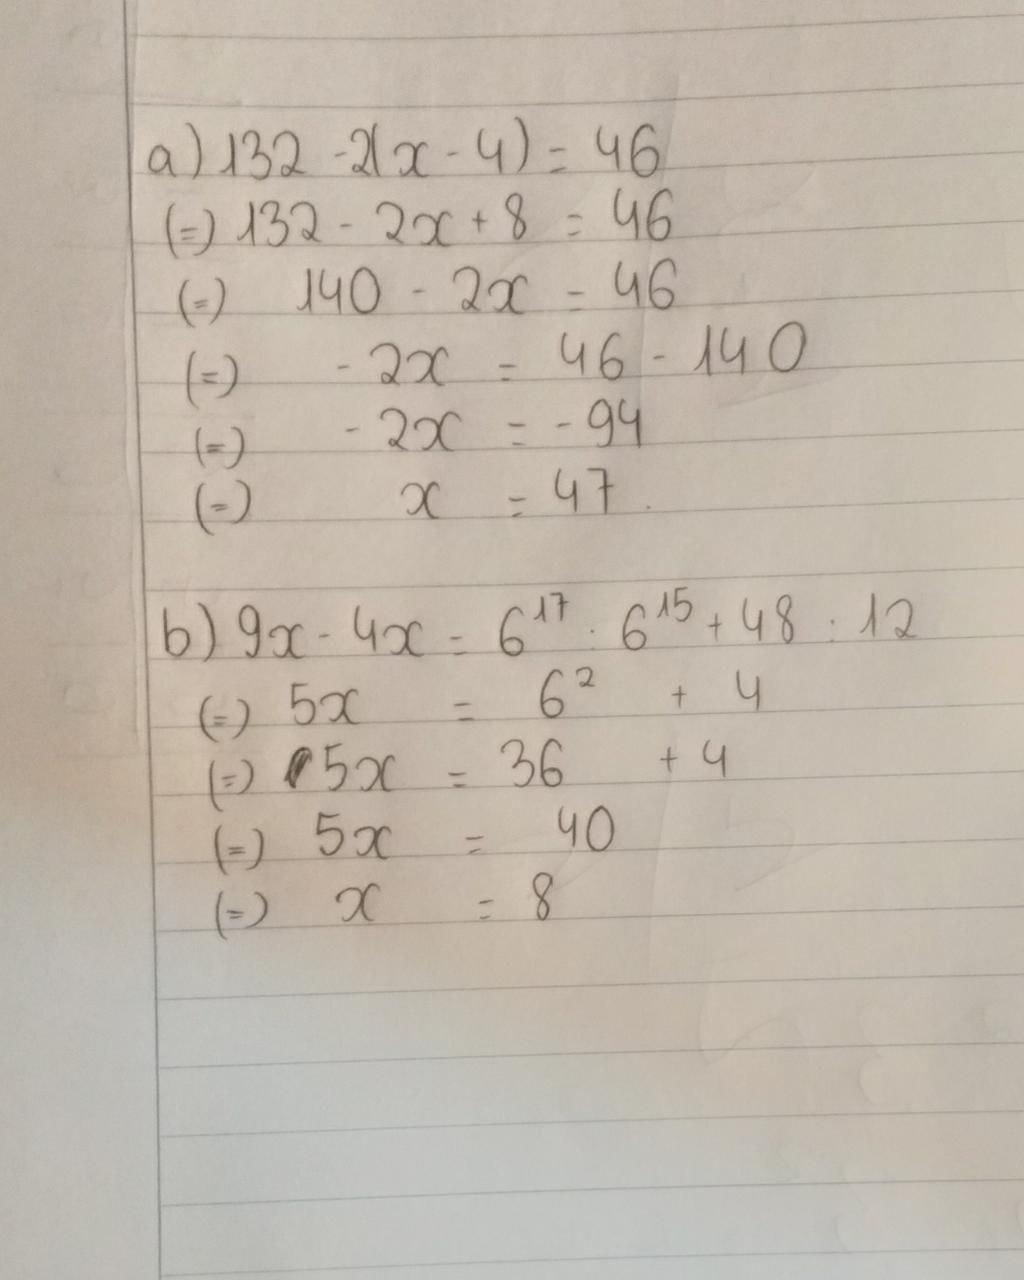 a) 132 - 2(x - 4) = 46
(=) 132 - 2x + 8 = 46
(=) 140 - 2x = 46
(=) - 2x = 46 - 140
(=) - 2x = - 94
(=) x = 47.
b) 9x - 4x = 6¹⁷ : 6¹⁵ + 48 : 12
(=) 5x = 6² + 4
(=) 5x = 36 + 4
(=) 5x = 40
(=) x = 8